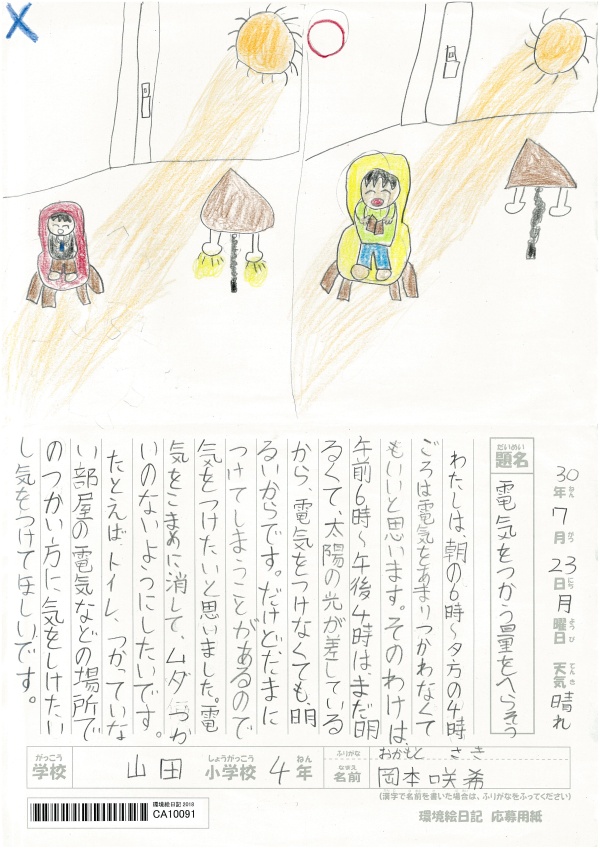 30年7月23日月曜日 天気晴れ
ねん がつ にち ようび てんき
だいめい
題名
電気をつかう量をへらそう
わたしは、朝の6時~夕方の4時
ごろは電気をあまりつかわなくて
もいいと思います。そのわけは
午前6時~午後4時は、まだ明
るくて、太陽の光が差している
から、電気をつけなくても、明
るいからです。だけどたまに
つけてしまうことがあるので
気をつけたいと思いました。電
気をこまめに消して、ムダづか
いのないようにしたいです。
たとえばトイレ、つかっていな
い部屋の電気などの場所で
のつかい方に気をしけたい
し気をつけてほしいです。
がっこう しょうがっこう ねん
学校 山田小学校4年
ふりがな おかもと さき
なまえ
名前 岡本咲希
(漢字で名前を書いた場合は、ふりがなをふってください)
環境絵日記 2018
CA10091
環境絵日記 応募用紙